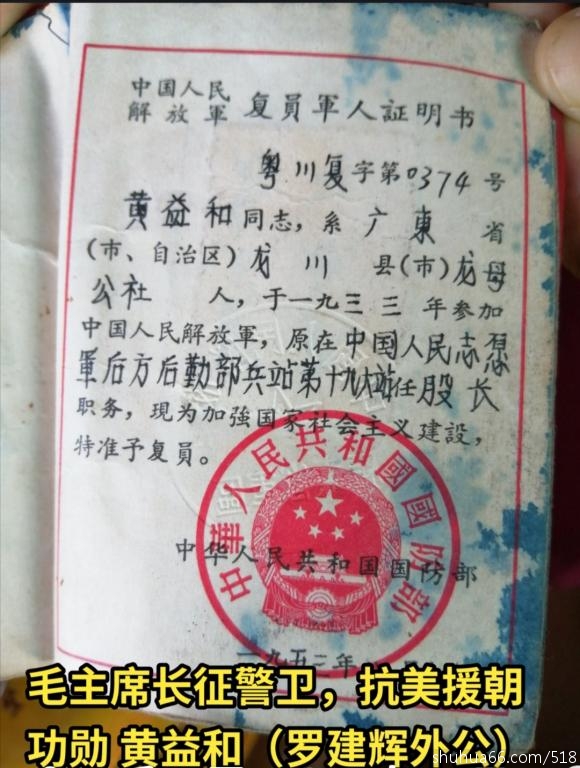 中国人民
解放軍 复員軍人証明书
粤川复字第0374号
黄益和同志，系广東省
(市、自治区)龙川县(市)龙母
公社 人，于一九三三年参加
中国人民解放軍，原在中国人民志愿
軍后方后勤部兵站第十九大站任股长
职务，现为加強国家社会主义建設，
特准予复員。
中華人民共和國國防部
中华人民共和国国防部
一九五二年
毛主席长征警卫，抗美援朝
功勋 黄益和（罗建辉外公）
shuhua66.com/518